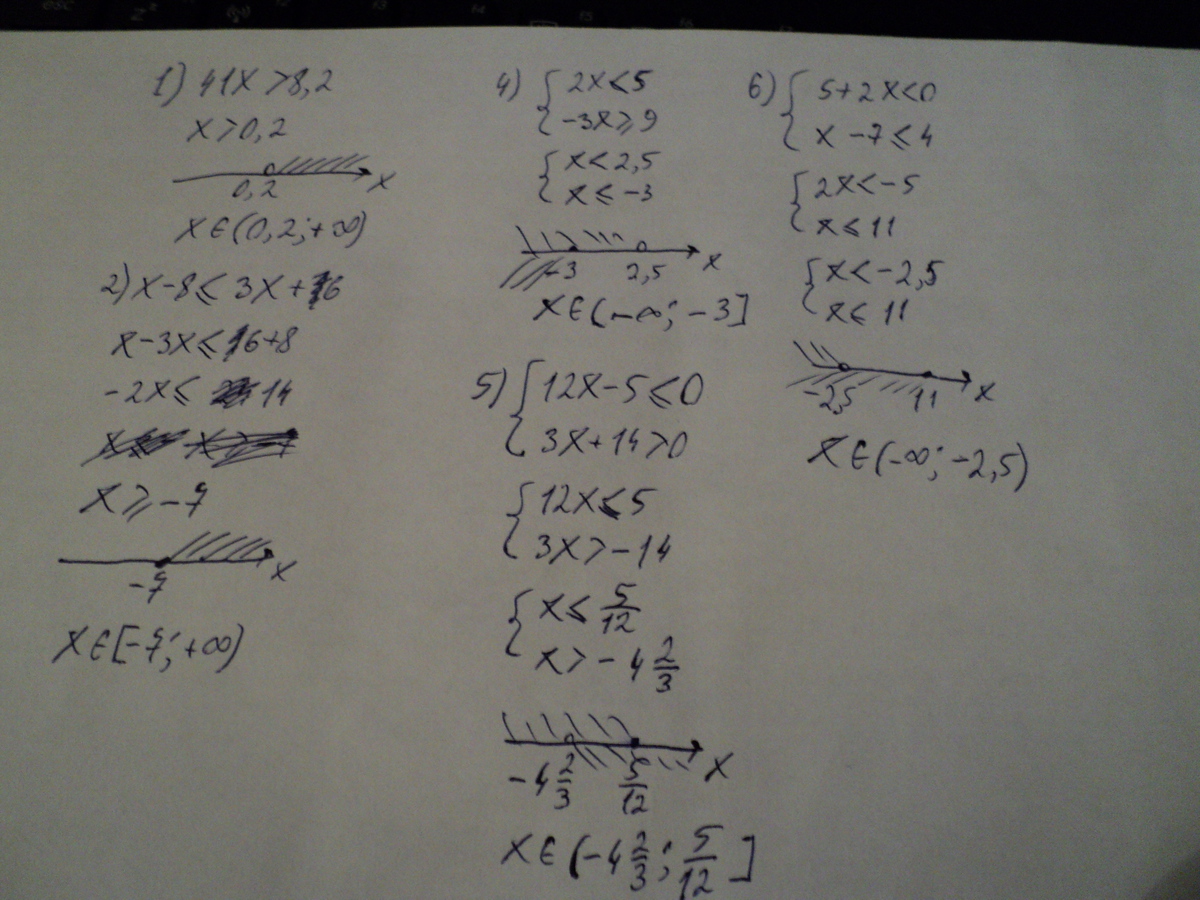 1) 41x > 8,2
x > 0,2
0,2 x
x ∈ (0,2; +∞)
2) x - 8 ≤ 3x + 6
x - 3x ≤ 6 + 8
-2x ≤ 14
x ≥ -7
-7 x
x ∈ [-7; +∞)
4) { 2x < 5
-3x ≥ 9
{ x < 2,5
x ≤ -3
-3 2,5 x
x ∈ (-∞; -3]
5) { 12x - 5 ≤ 0
3x + 14 > 0
{ 12x ≤ 5
3x > -14
{ x ≤ 5/12
x > -4 2/3
-4 2/3 5/12 x
x ∈ (-4 2/3; 5/12]
6) { 5 + 2x < 0
x - 7 ≤ 4
{ 2x < -5
x ≤ 11
{ x < -2,5
x ≤ 11
-2,5 11 x
x ∈ (-∞; -2,5)